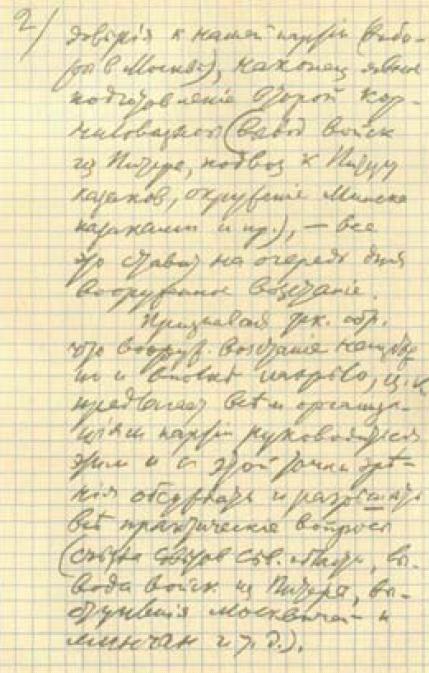 2/
довѣрія к нашей партіи (выбо-
ры в Москвѣ), наконец явное
подготовленіе второй кор-
ниловщины (вывод войск
из Питера, подвоз к Питеру
казаков, окруженіе Минска
казаками и пр.), — все
это ставит на очередь дня
вооруженное возстаніе.
Признавая так. обр.
что вооруж. возстаніе неизбеж
но и вполнѣ назрѣло, ЦК
предлагает всѣм организа-
ціям партіи руководиться
этим и с этой точки зрѣ-
нія обсуждать и разрѣшать
всѣ практические вопросы
(съѣзда Совѣтов Сѣв. области, вы-
вода войск из Питера, вы-
ступленія москвичей и
минчан и т. д.).